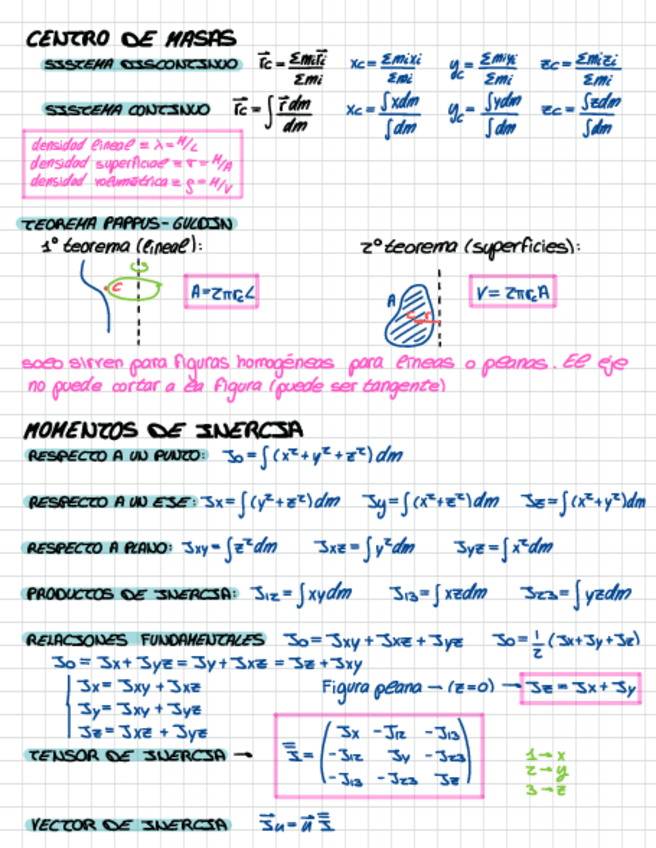 CENTRO DE MASAS
SISTEMA DISCONTINUO r⃗c = Σmir⃗i / Σmi xc = Σmixi / Σmi yc = Σmiyi / Σmi zc = Σmizi / Σmi
SISTEMA CONTINUO r⃗c = ∫ r⃗dm / dm xc = ∫xdm / ∫dm yc = ∫ydm / ∫dm zc = ∫zdm / ∫dm
densidad lineal ≡ λ = M/L
densidad superficial ≡ σ = M/A
densidad volumétrica ≡ ρ = M/V
TEOREMA PAPPUS-GULDIN
1º teorema (lineal):
C
A = 2πrcL
2º teorema (superficies):
A
C r
V = 2πrcA
solo sirven para figuras homogéneas para líneas o planas. El eje
no puede cortar a la figura (puede ser tangente)
MOMENTOS DE INERCIA
RESPECTO A UN PUNTO: Jo = ∫(x²+y²+z²)dm
RESPECTO A UN EJE: Jx = ∫(y²+z²)dm Jy = ∫(x²+z²)dm Jz = ∫(x²+y²)dm
RESPECTO A PLANO: Jxy = ∫z²dm Jxz = ∫y²dm Jyz = ∫x²dm
PRODUCTOS DE INERCIA: J12 = ∫xydm J13 = ∫xzdm J23 = ∫yzdm
RELACIONES FUNDAMENTALES Jo = Jxy + Jxz + Jyz Jo = 1/2 (Jx+Jy+Jz)
Jo = Jx + Jyz = Jy + Jxz = Jz + Jxy
Jx = Jxy + Jxz
Jy = Jxy + Jyz
Jz = Jxz + Jyz
Figura plana → (z=0) → Jz = Jx + Jy
TENSOR DE INERCIA → J̿ =
Jx -J12 -J13
-J12 Jy -J23
-J13 -J23 Jz
1→x
2→y
3→z
VECTOR DE INERCIA J⃗u = u⃗ J̿